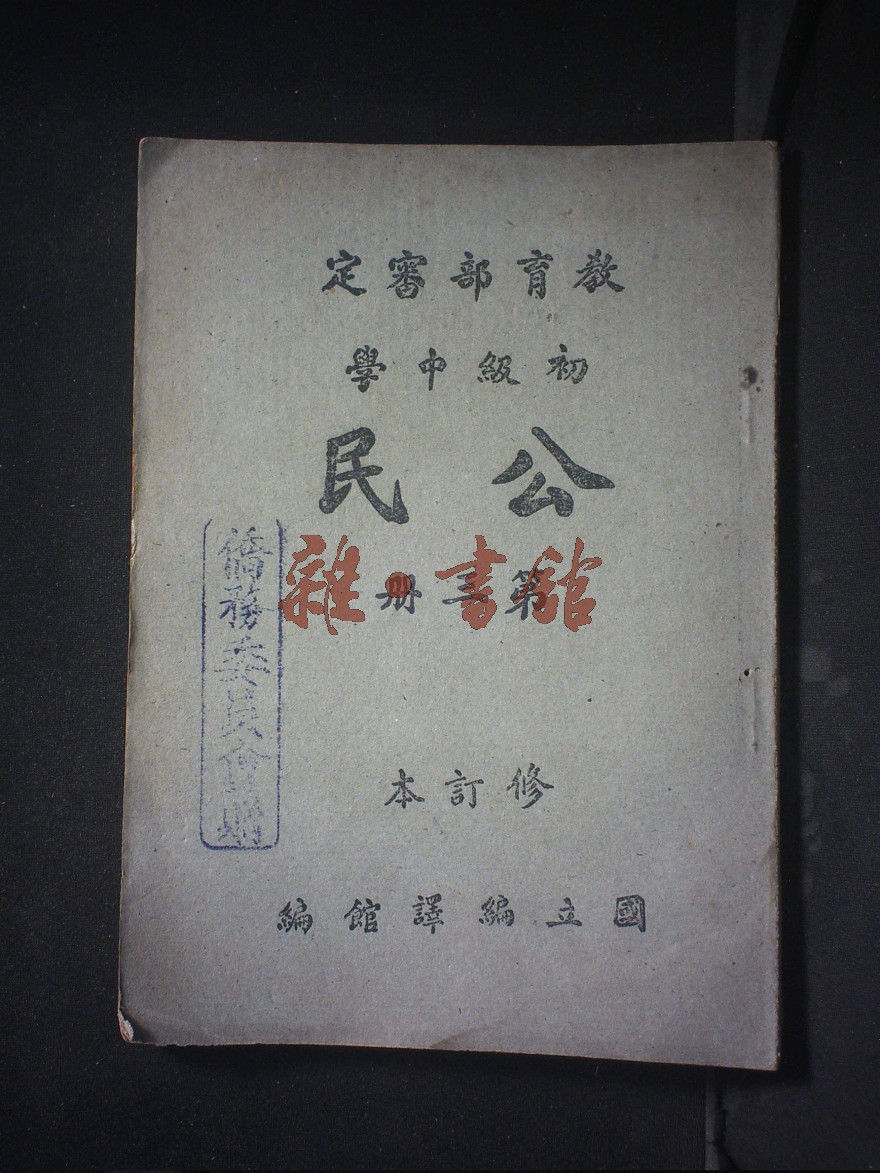 教育部審定
初級中學
公民
第三冊
修訂本
國立編譯館編
僑務委員會贈
雜·書館